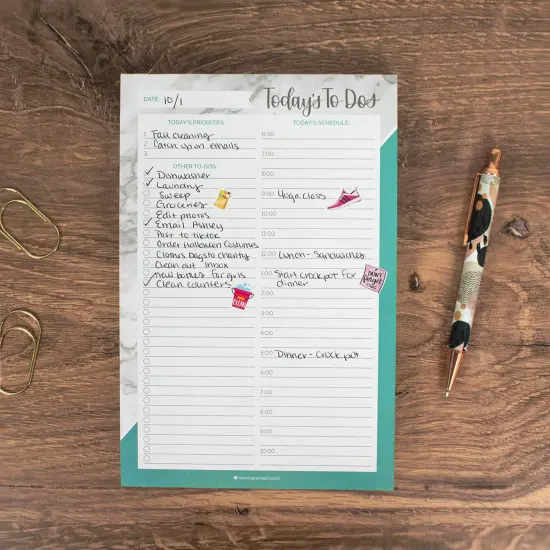 DATE: 10/1
Today's To-Dos
TODAY'S PRIORITIES:
1. Fall cleaning
2. Catch up on emails
3.
OTHER TO-DOS:
Dishwasher
Laundry
Sweep
Groceries
Edit photos
Email Ashley
Post to tiktok
Order Halloween Costumes
Clothes Bags to charity
Clean out inbox
new for girls
Clean counters
CLEAN
TODAY'S SCHEDULE:
6:00
7:00
8:00
9:00 Yoga class
10:00
11:00
12:00 Lunch - Sandwiches
1:00 Start crockpot for
dinner
DON'T
forget
2:00
3:00
4:00
5:00 Dinner - Crockpot
6:00
7:00
8:00
9:00
10:00